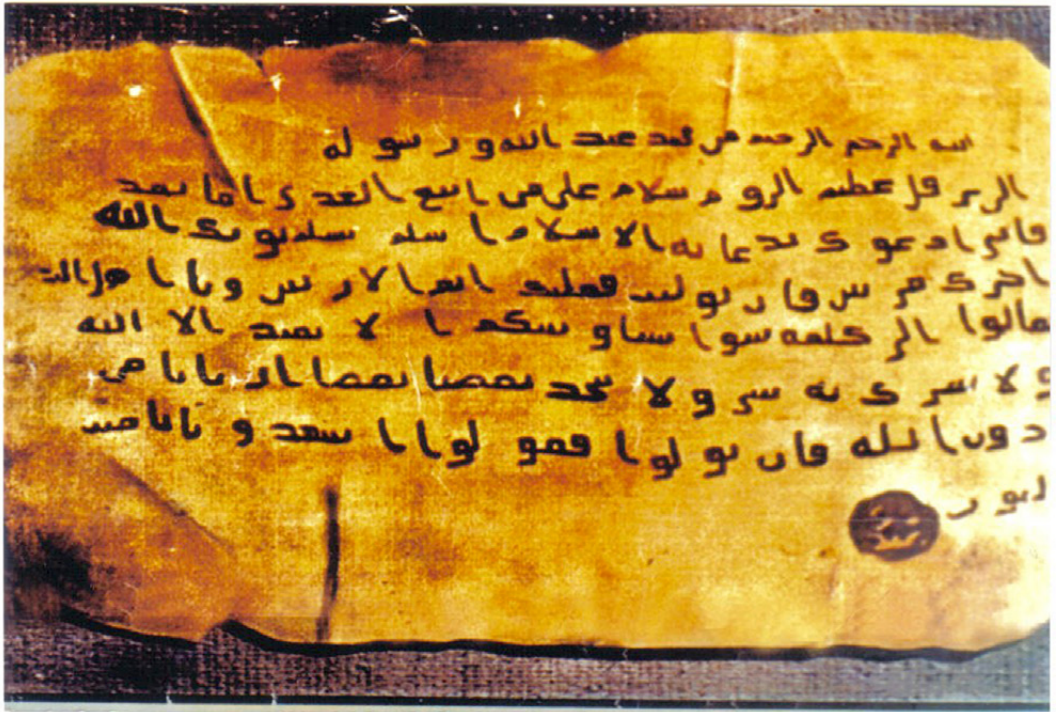 بسم الله الرحمن الرحيم من محمد عبد الله ورسوله
الى هرقل عظيم الروم سلام على من اتبع الهدى اما بعد
فانى ادعوك بدعاية الاسلام اسلم تسلم يوتك الله
اجرك مرتين فان توليت فعليك اثم الاريسين ويا اهل الكتاب
تعالوا الى كلمة سوا بيننا وبينكم الا نعبد الا الله
ولا نشرك به شى ولا يتخذ بعضنا بعضا اربابا من
دون الله فان تولوا فقولوا اشهدوا بانا مسلمون